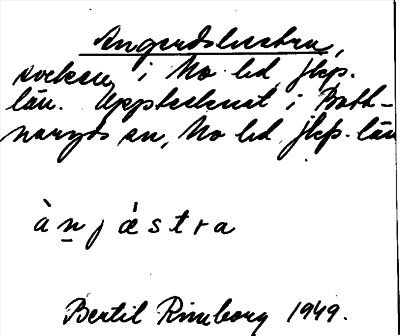 Angerdshestra,
socken i Mo hd jkp.
län. Upptecknat i Bott-
naryds sn, Mo hd jkp. län
àn̠jǽstra
Bertil Rimborg 1949.